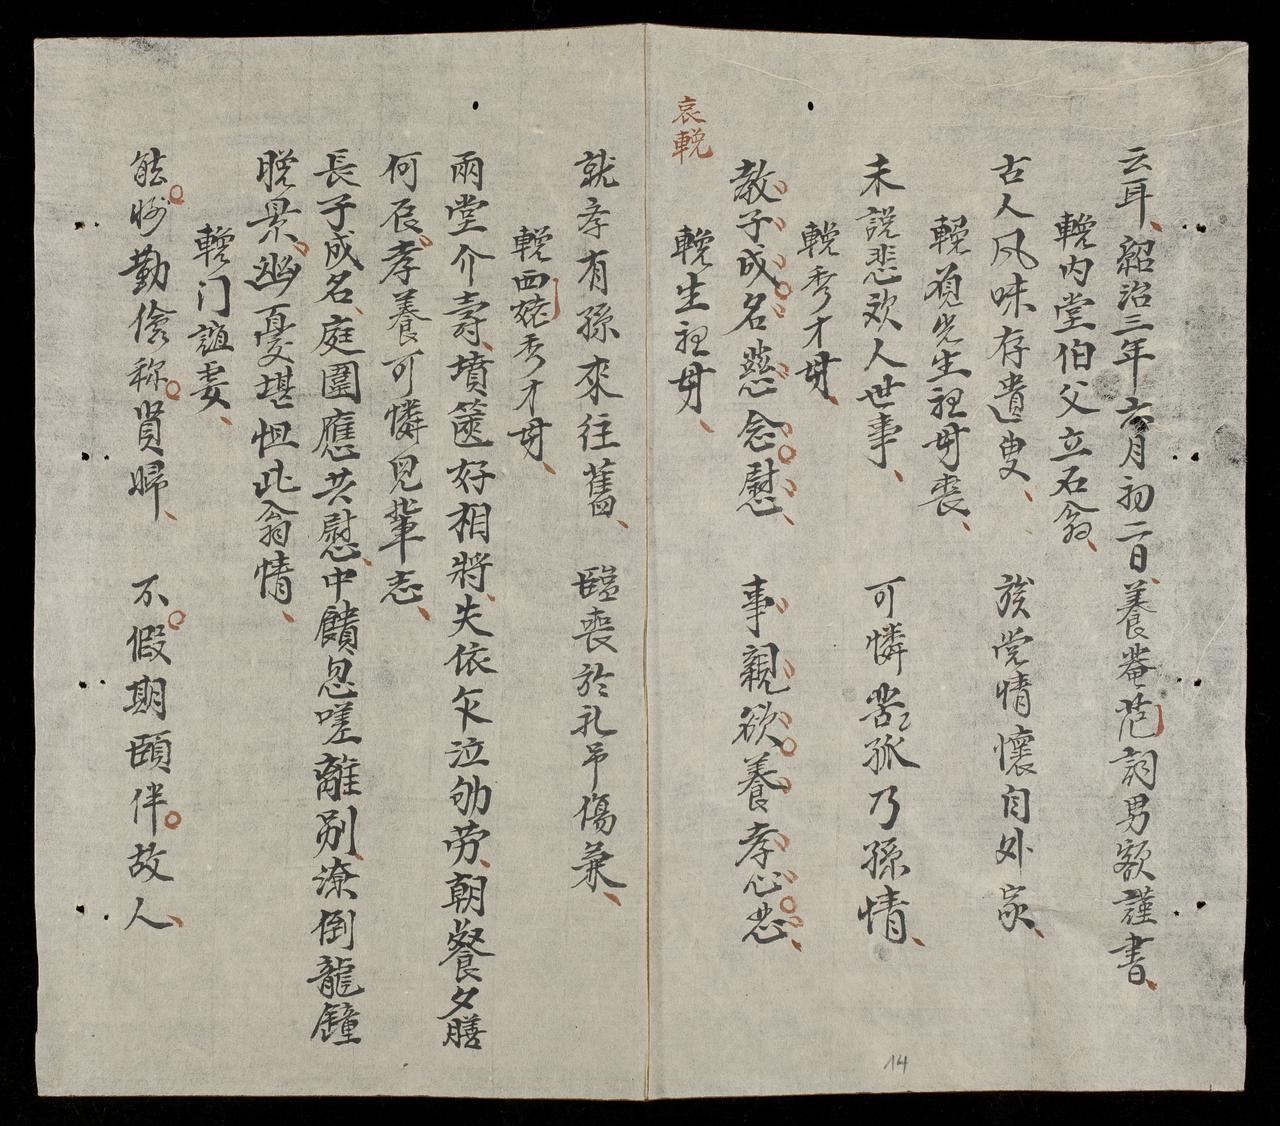 云耳紹治三年六月初二日養菴范詞男額謹書
輓内堂伯父立石翁
古人风味存遺叟 族党情懷自外家
輓負先生祖母喪
未說悲欢人世事 可憐苦孤乃孫情
輓秀才母
教子成名慈念慰 事親欲養孝心悲
哀輓
輓生祖母
就孝有孫來往舊 臨喪於礼吊傷兼
輓西秀才母
兩堂介壽墳篪好相將失依乍泣劬劳朝餐夕膳
何辰孝養可憐児輩志
長子成名庭圍應共慰中饋忽嗟離别潦倒龍鐘
晚景幽憂堪怛此翁情
輓门誼妻
能勤儉称賢婦 不假期頤伴故人
14